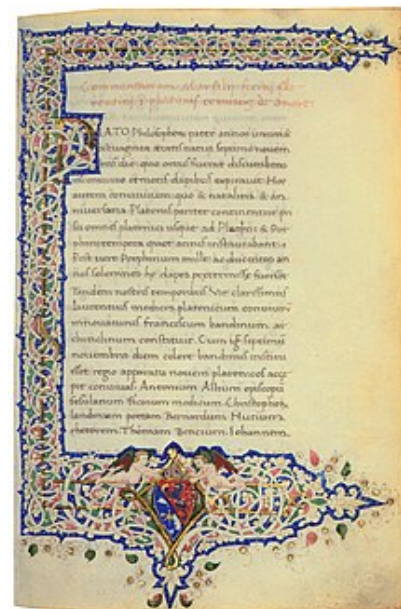 Commentarium Marsilii ficini flo
rentini i platonis conuiuium de amore
PLATO Philosophorum pater annos unum &
octuaginta ętatis natus septimo nouem
bris die quo ortus fuerat discumbens
in conuiuio remotis dapibus expirauit. Hoc
autem conuiuium quo & natalitia & an
niuersaria Platonis pariter continentur pri
sci omnes platonici usque ad Plotini & Por
phirii tempora quot annis instaurabant.
Post uero Porphirium mille ac ducentos an
nos solemnes he dapes pretermisse fuerunt.
Tandem nostris temporibus Vir clarissimus
laurentius medices platonicum conuiuium
innouaturus franciscum bandinum ar
chitriclinum constituit. Cum igitur septimum
nouembris diem colere bandinus instituis
set regio apparatu nouem platonicos acce
pit conuiuas. Antonium Allium episcopum
fesulanum ficinum medicum. Christophorum
landinum poetam. Bernardum Nutium
rhetorem. Thomam Bencium. Iohannem